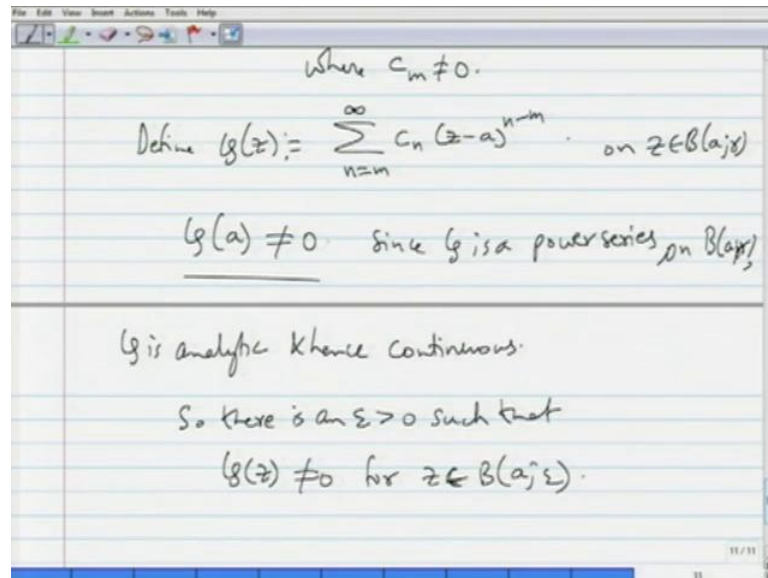 File Edit View Insert Actions Tools Help
where c_m ≠ 0.
Define g(z) := ∑_{n=m}^{∞} c_n (z-a)^{n-m} . on z ∈ B(a;r)
g(a) ≠ 0 Since g is a power series on B(a;r),
g is analytic & hence continuous.
So there is an ε > 0 such that
g(z) ≠ 0 for z ∈ B(a; ε).
11 / 11
11